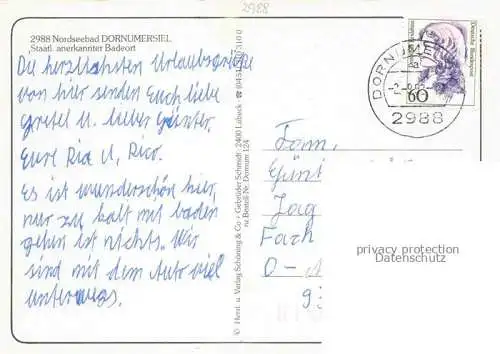 2988
2988 Nordseebad DORNUMERSIEL
Staatl. anerkannter Badeort
Die herzlichsten Urlaubsgrüße
von hier senden Euch liebe
Gretel u. lieber Günter.
Eure Ria u. Rico.
Es ist wunderschön hier,
nur zu kalt mit baden
gehen ist nichts. Wir
sind mit dem Auto viel
unterwegs.
© Herst. u. Verlag Schöning & Co + Gebrüder Schmidt, 2400 Lübeck
zu Bestell-Nr. Dornum 124
Deutsche Bundespost
60
DORNUME
2988
Fam.
Günt
Jag
Fach
O-
93
privacy protection
Datenschutz